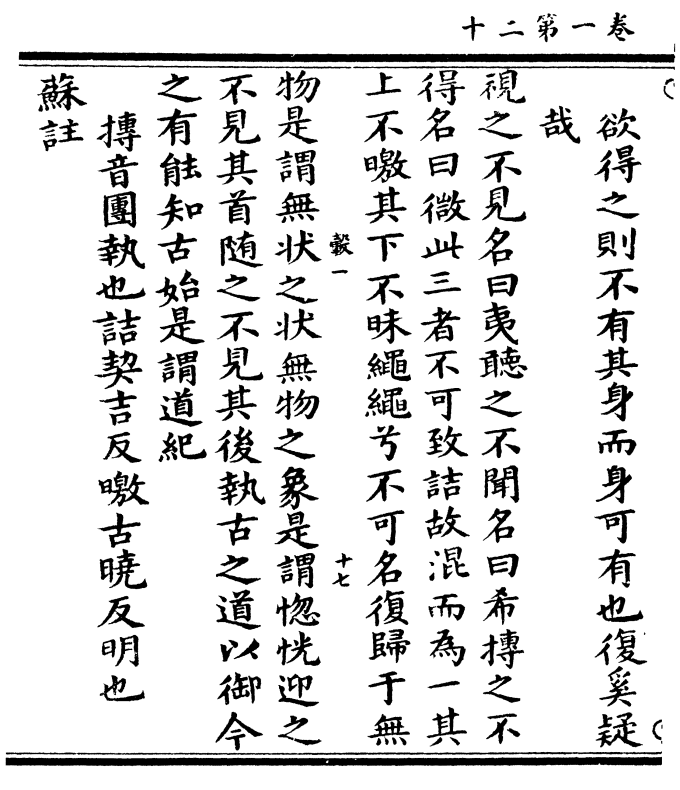 十二第一卷
欲得之則不有其身而身可有也復奚疑
哉
視之不見名曰夷聽之不聞名曰希摶之不
得名曰微此三者不可致詰故混而為一其
上不曒其下不昧繩繩兮不可名復歸于無
穀一
十七
物是謂無狀之狀無物之象是謂惚恍迎之
不見其首随之不見其後執古之道以御今
之有能知古始是謂道紀
摶音團執也詰契吉反曒古曉反明也
蘇註